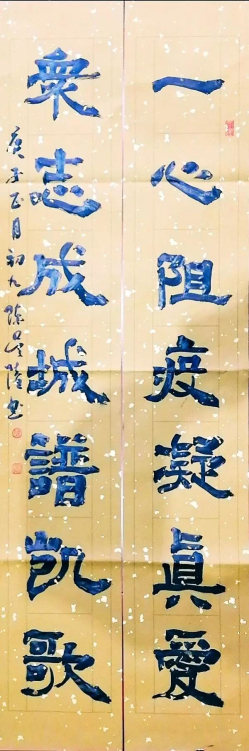 一心阻疫凝真愛
衆志成城譜凱歌
庚子正月初九陳